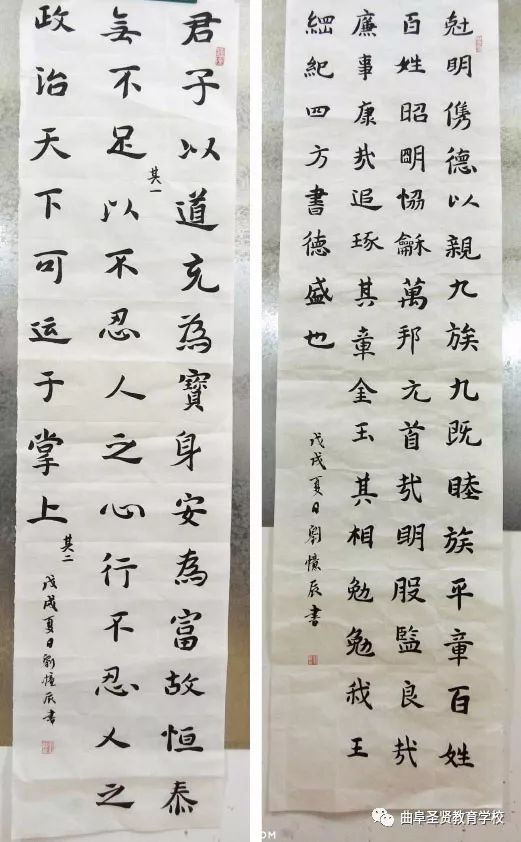 君子以道充為寶身安為富故恒泰
無不足其一以不忍人之心行不忍人之
政治天下可运于掌上其二
戊戌夏日劉憶辰書
尅明儁德以親九族九既睦族平章百姓
百姓昭明恊龢萬邦元首㢤明股監良㢤
廉事康㢤追琢其章金玉其相勉勉我王
綱紀四方書德盛也
戊戌夏日劉憶辰書
曲阜圣贤教育学校
OM